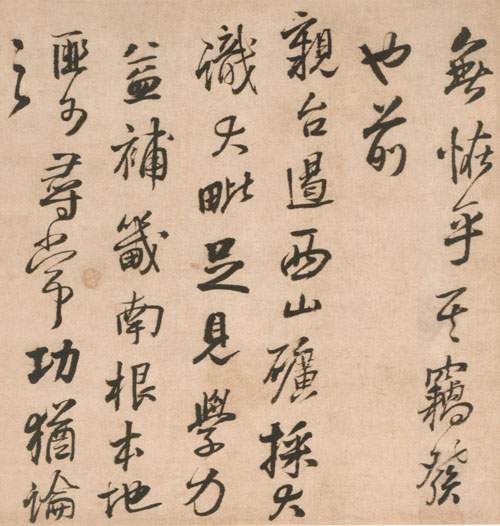 無恠乎其竊發
也前
親台遏西山礦採大
識大毗足見學力
益補畿南根本地
匪可尋常功猶論
之